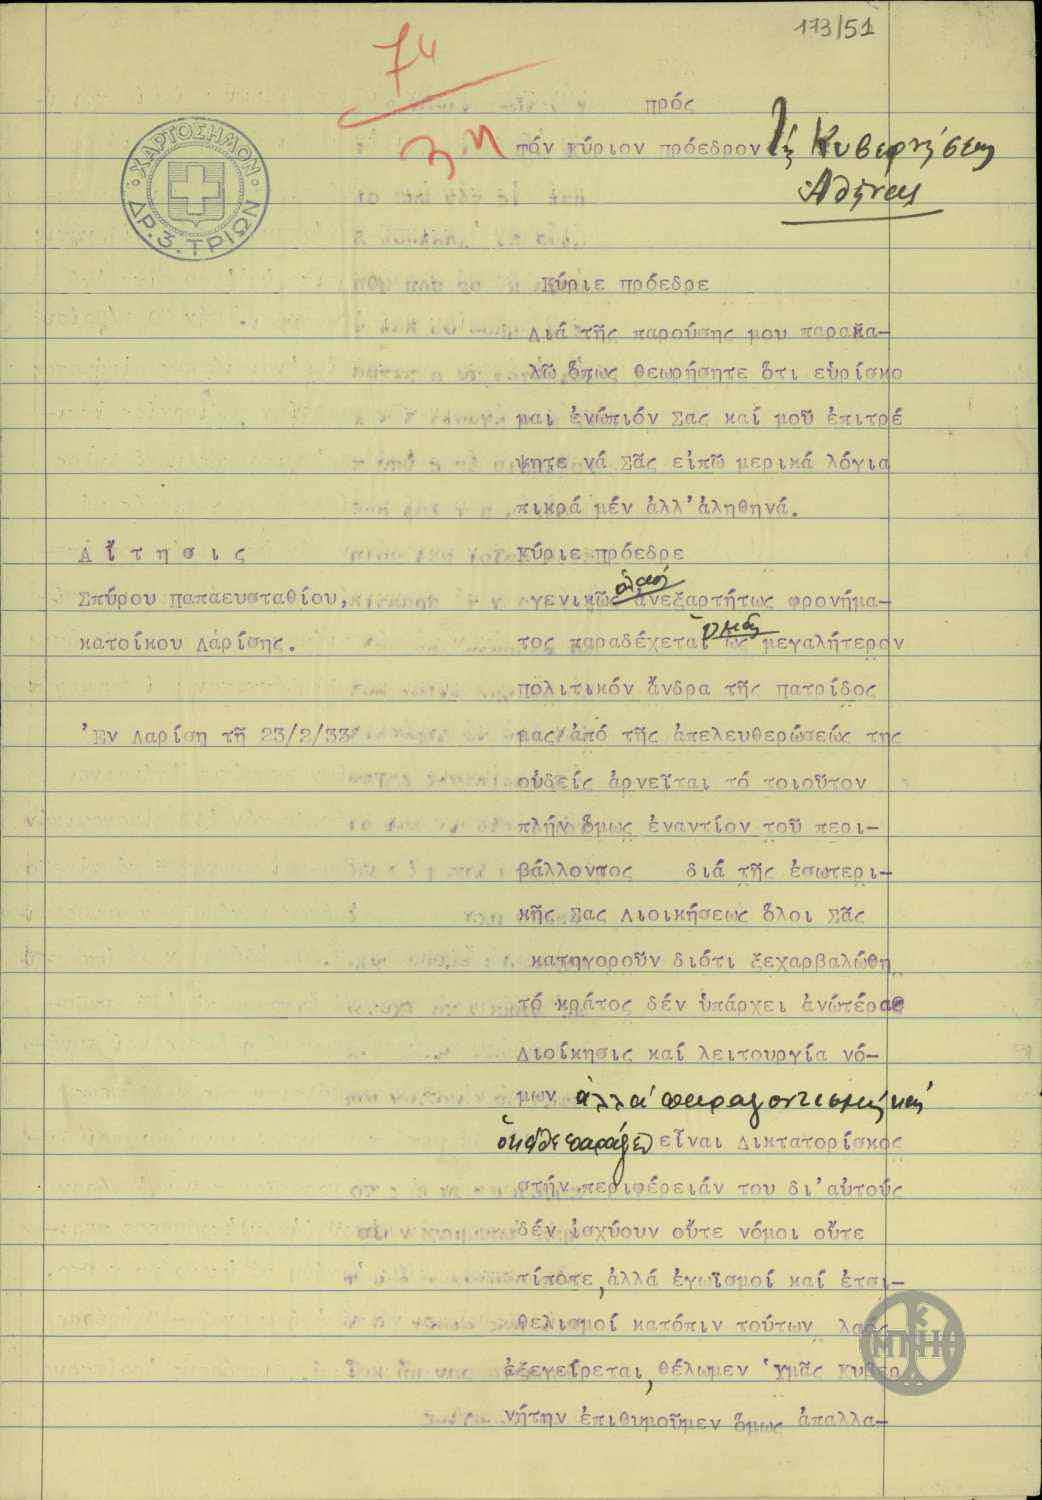 173/51
74
3η
ΧΑΡΤΟΣΗΜΟΝ
ΔΡ.3.ΤΡΙΩΝ
πρός
τόν Κύριον πρόεδρον τῆς Κυβερνήσεως
Ἀθήνας
Κύριε πρόεδρε
Διά τῆς παρούσης μου παρακα-
λῶ ὅπως θεωρήσητε ὅτι εὑρίσκο
μαι ἐνώπιόν Σας καί μοῦ ἐπιτρέ
ψητε νά Σᾶς εἰπῶ μερικά λόγια
πικρά μέν ἀλλ'ἀληθηνά.
Αἴτησις
Σπύρου Παπαευσταθίου,
κατοίκου Λαρίσης.
Ἐν Λαρίση τῆ 23/2/33
Κύριε πρόεδρε
ὁ λαός
γενικῶς ἀνεξαρτήτως φρονήμα-
ὑμᾶς
τος παραδέχεται ὡς μεγαλήτερον
πολιτικόν ἄνδρα τῆς πατρίδος
μας ἀπό τῆς ἀπελευθερώσεώς της
οὐδείς ἀρνεῖται τό τοιοῦτον
πλήν ὅμως ἐναντίον τοῦ περι-
βάλλοντος διά τῆς ἐσωτερι-
κῆς Σας Διοικήσεως ὅλοι Σᾶς
κατηγοροῦν διότι ξεχαρβαλώθη
τό κράτος δέν ὑπάρχει ἀνώτέρα
Διοίκησις καί λειτουργία νό-
μων ἀλλά παραγοντισμός καί
ὁ κάθε παράγων εἶναι Δικτατορίσκος
στήν περιφέρειάν του δι'αὐτούς
δέν ἰσχύουν οὔτε νόμοι οὔτε
τίποτε, ἀλλά ἐγωϊσμοί καί ἐτσι-
θελισμοί κατόπιν τούτων λαός
ἐξεγείρεται, θέλωμεν Ὑμᾶς Κυβερ
νήτην ἐπιθυμοῦμεν ὅμως ἀπαλλα-